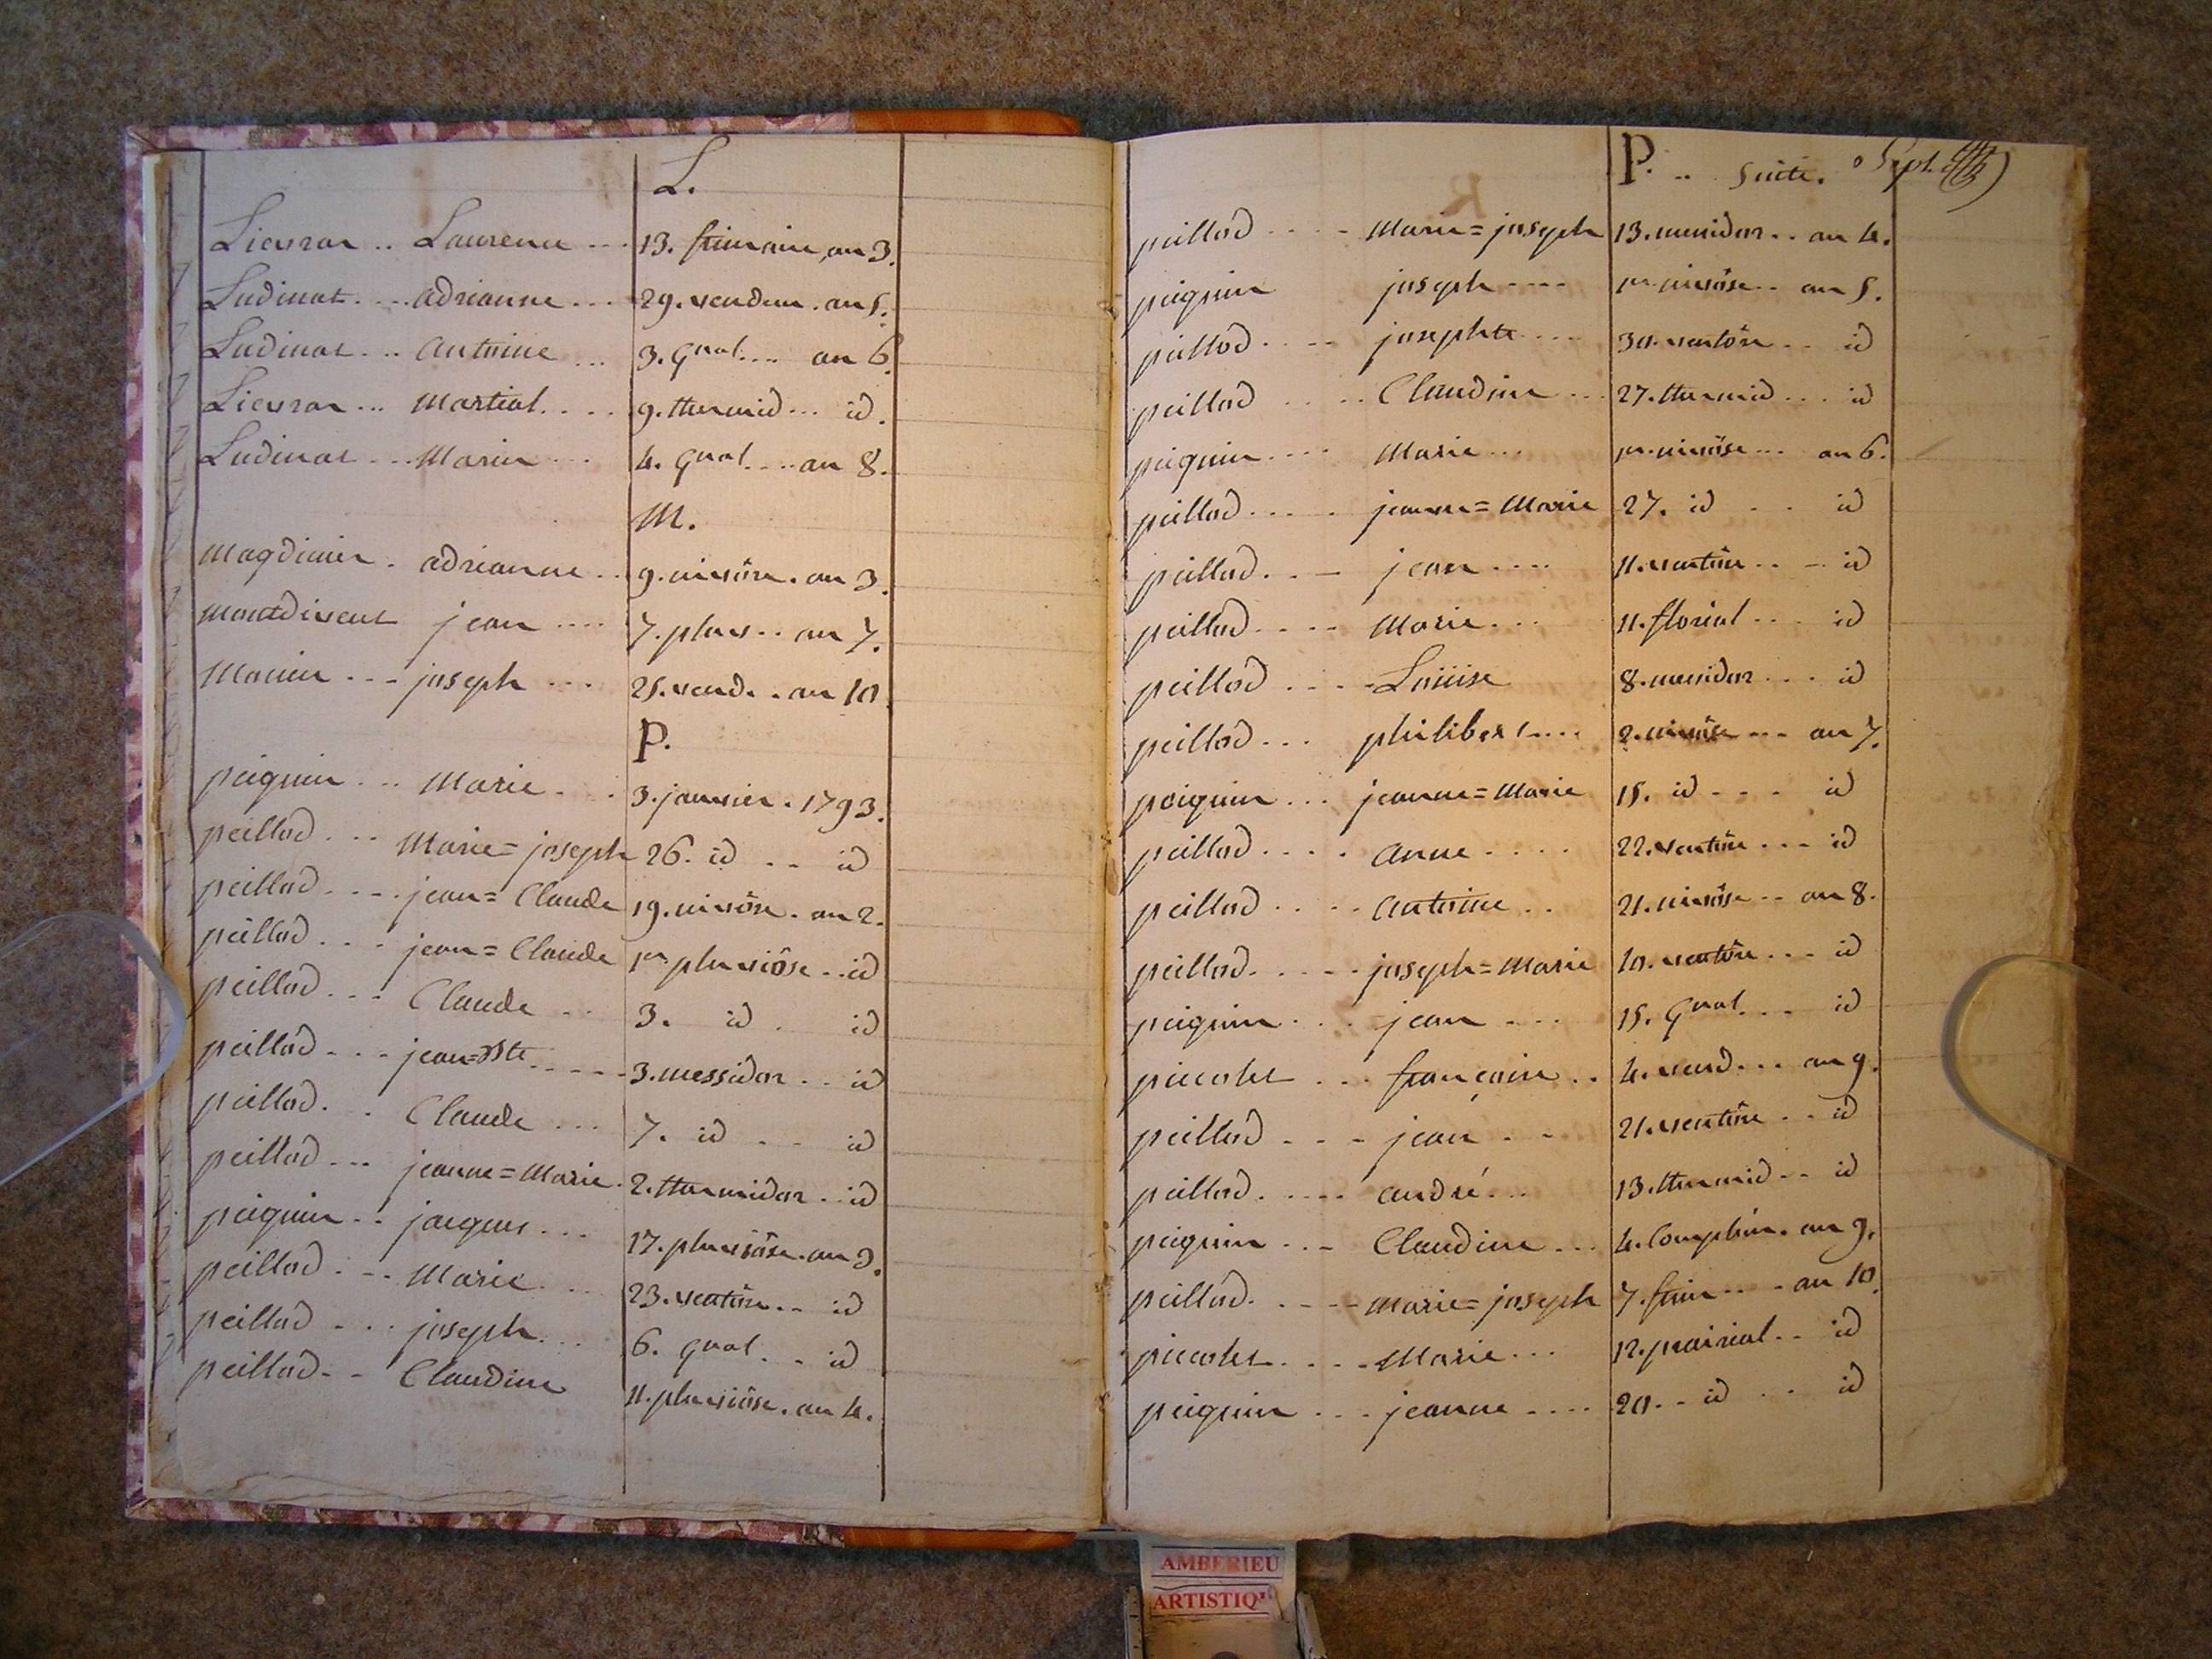 L.
Lievran .. Laurence ... 13. frimaire, an 3.
Ludinat ... adrianne ... 29. vendem. an 5.
Ludinat ... antoine ... 3. gnal ... an 6
Lievran ... martial .... 9. thermid ... id.
Ludinat ... Marie ... 4. gnal .... an 8.
M.
magdinier . adrianne .. 9. nivôse. an 3.
jean .... 7. pluv .. an 7.
joseph ... 25. vend. . an 10
P.
peiguin ... Marie ... 3. janvier. 1793.
peillod ... Marie=joseph 26. id .. id
peillod .... jean=Claude 19. nivôse. an 2.
peillod .... jean=Claude 1er pluviôse .. id
peillod ... Claude .. 3. id . id
peillod ... jean=Bte ..... 3. messidor .. id
peillod .. Claude ... 7. id .. id
peillod ... jeanne=Marie . 2. thermidor .. id
peiguin .. jacques ... 17. pluviôse. an 3.
peillod ... Marie ... 23. ventôse .. id
peillod .... joseph ... 6. gnal .. id
peillod .. Claudine 11. pluviôse. an 4.
P. .. suite. Sept.
peillod .... Marie=joseph 13. messidor .. an 4.
peiguin joseph .... 1er nivôse .. an 5.
peillod .... josephte .... 30. ventôse .. id
peillod .... Claudine ... 27. thermid ... id
peiguin .... Marie ... 1er nivôse ... an 6.
peillod .... jeanne=Marie 27. id .. id
peillod ... jean .... 11. ventôse ... id
peillod .... Marie ... 11. floréal ... id
peillod .... Louise 8. messidor ... id
peillod ... philibert .... 2. nivôse ... an 7.
peiguin ... jeanne=Marie 15. id ... id
peillod .... anne .... 22. ventôse ... id
peillod .... antoine .. 21. nivôse .. an 8.
peillod ..... joseph=Marie 10. ventôse ... id
peiguin ... jean ... 15. gnal ... id
piccolet ... françoise .. 4. vend ... an 9.
peillod ... jean .. 21. ventôse .. id
peillod ..... andré ... 13. thermid .. id
peiguin ... Claudine ... 4. complém. an 9.
peillod ..... marie=joseph 7. frim ... an 10.
piccolet ..... Marie ... 12. prairial .. id
peiguin .... jeanne .... 20 .. id .. id
AMBERIEU
ARTISTIQ